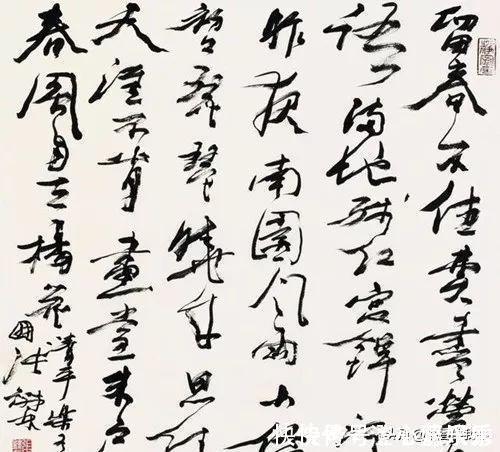 留春不住费尽莺
语满地残红宫锦
昨夜南园风雨小怜
琵琶晓来思绕
天涯不肯画堂朱户
春风自在杨花
清平乐
快传号